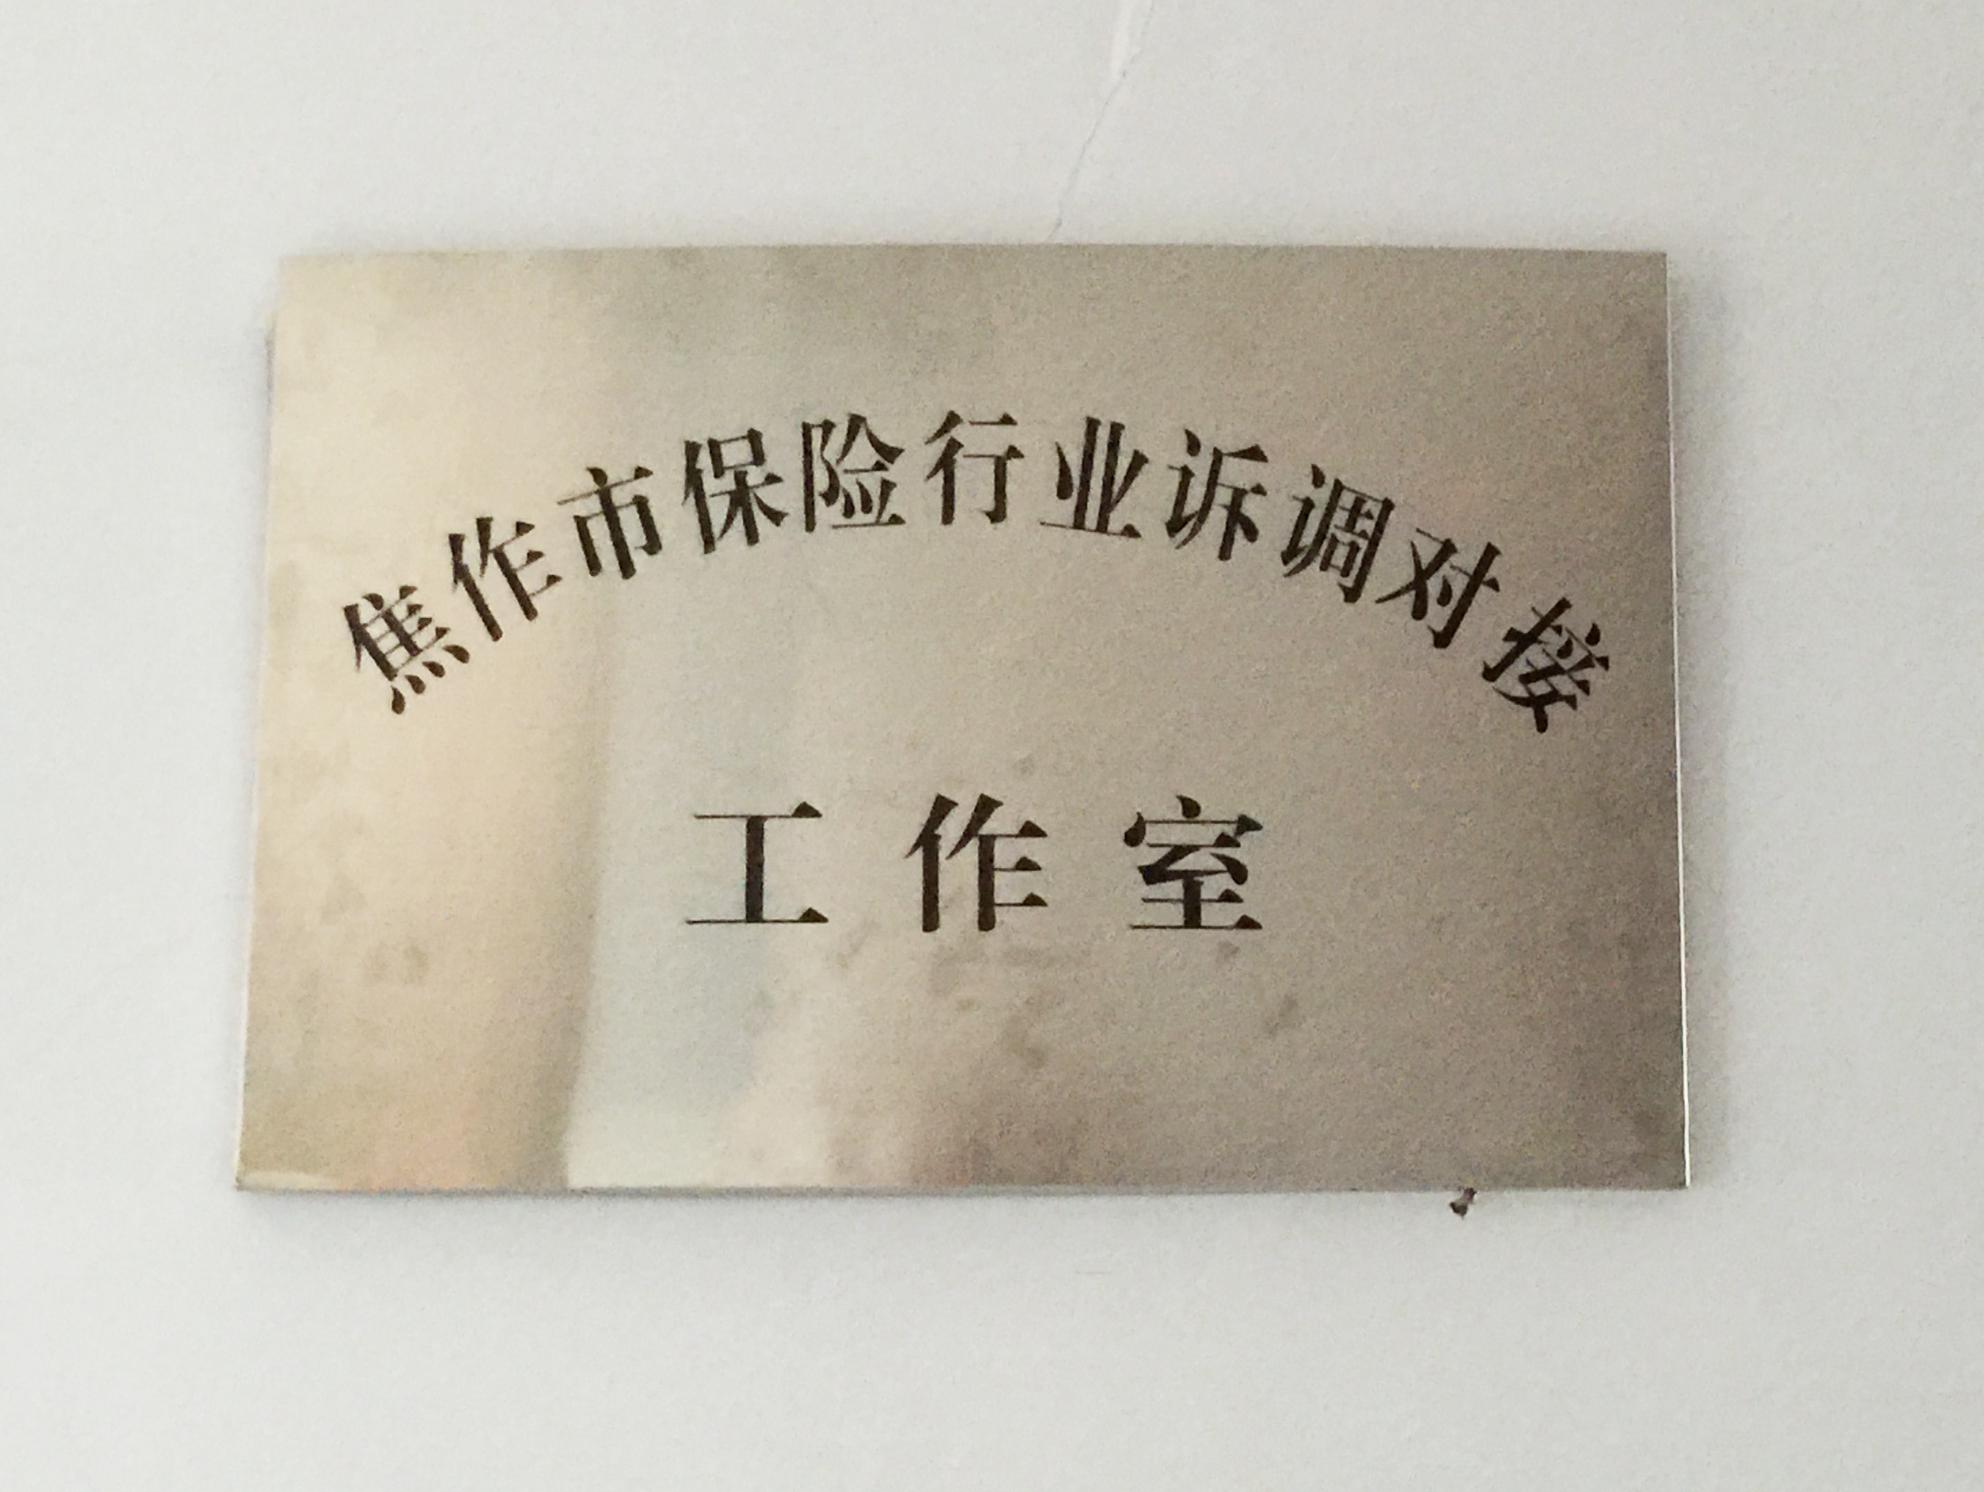 焦作市保险行业诉调对接
工作室